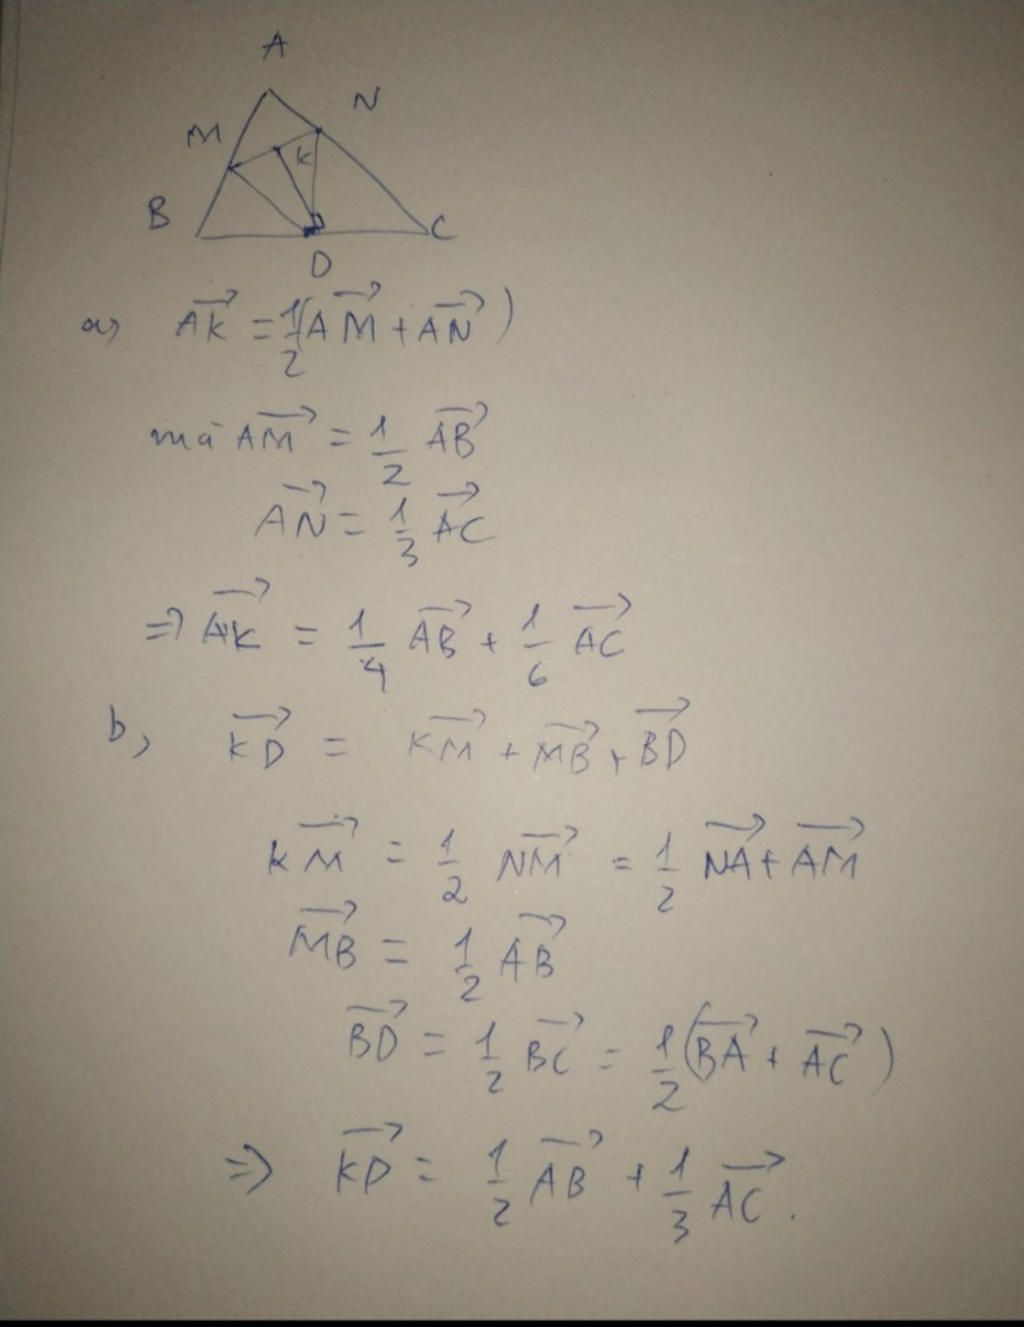 A
N
M
K
B
C
D
a) \overrightarrow{AK} = \frac{1}{2}(\overrightarrow{AM} + \overrightarrow{AN})
mà \overrightarrow{AM} = \frac{1}{2} \overrightarrow{AB}
\overrightarrow{AN} = \frac{1}{3} \overrightarrow{AC}
=> \overrightarrow{AK} = \frac{1}{4} \overrightarrow{AB} + \frac{1}{6} \overrightarrow{AC}
b, \overrightarrow{KD} = \overrightarrow{KM} + \overrightarrow{MB} + \overrightarrow{BD}
\overrightarrow{KM} = \frac{1}{2} \overrightarrow{NM} = \frac{1}{2} \overrightarrow{NA} + \overrightarrow{AM}
\overrightarrow{MB} = \frac{1}{2} \overrightarrow{AB}
\overrightarrow{BD} = \frac{1}{2} \overrightarrow{BC} = \frac{1}{2}(\overrightarrow{BA} + \overrightarrow{AC})
=> \overrightarrow{KD} = \frac{1}{2} \overrightarrow{AB} + \frac{1}{3} \overrightarrow{AC}.